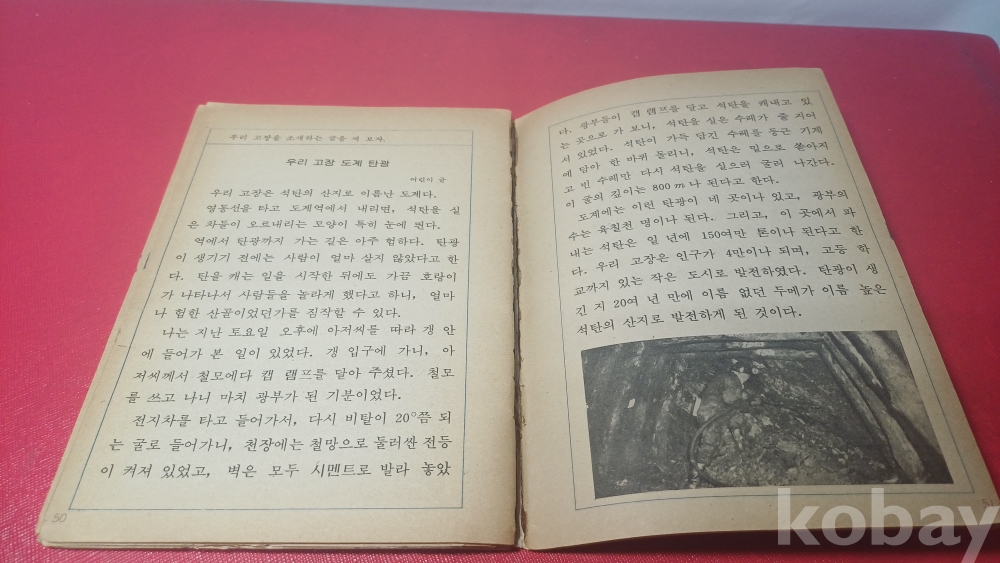 우리 고장을 소개하는 글을 써 보자.
우리 고장 도계 탄광
어린이 글
우리 고장은 석탄의 산지로 이름난 도계다.
영동선을 타고 도계역에서 내리면, 석탄을 실
은 차들이 오르내리는 모양이 특히 눈에 띈다.
역에서 탄광까지 가는 길은 아주 험하다. 탄광
이 생기기 전에는 사람이 얼마 살지 않았다고 한
다. 탄을 캐는 일을 시작한 뒤에도 가끔 호랑이
가 나타나서 사람들을 놀라게 했다고 하니, 얼마
나 험한 산골이었던가를 짐작할 수 있다.
나는 지난 토요일 오후에 아저씨를 따라 갱 안
에 들어가 본 일이 있었다. 갱 입구에 가니, 아
저씨께서 철모에다 캡 램프를 달아 주셨다. 철모
를 쓰고 나니 마치 광부가 된 기분이었다.
전지차를 타고 들어가서, 다시 비탈이 20°쯤 되
는 굴로 들어가니, 천장에는 철망으로 둘러싼 전등
이 켜져 있었고, 벽은 모두 시멘트로 발라 놓았
50
다. 광부들이 캡 램프를 달고 석탄을 캐내고 있
는 곳으로 가 보니, 석탄을 실은 수레가 줄 지어
서 있었다. 석탄이 가득 담긴 수레를 둥근 기계
에 담아 한 바퀴 돌리니, 석탄은 밑으로 쏟아지
고 빈 수레만 다시 석탄을 실으러 굴러 나간다.
이 굴의 깊이는 800m나 된다고 한다.
도계에는 이런 탄광이 네 곳이나 있고, 광부의
수는 육칠천 명이나 된다. 그리고, 이 곳에서 파
내는 석탄은 일 년에 150여만 톤이나 된다고 한
다. 우리 고장은 인구가 4만이나 되며, 고등 학
교까지 있는 작은 도시로 발전하였다. 탄광이 생
긴 지 20여 년 만에 이름 없던 두메가 이름 높은
석탄의 산지로 발전하게 된 것이다.
kobay